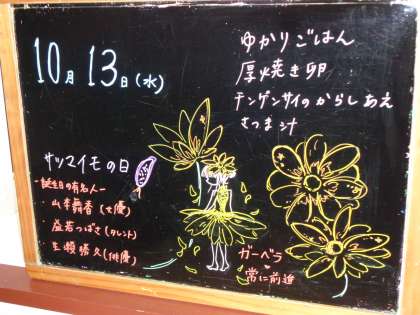 10月13日(水)
ゆかりごはん
厚焼き卵
チンゲンサイのからしあえ
さつま汁
サツマイモの日
-誕生日の有名人-
・山本舞香(女優)
・益若つばさ(タレント)
・生瀬勝久(俳優)
ガーベラ
常に前進